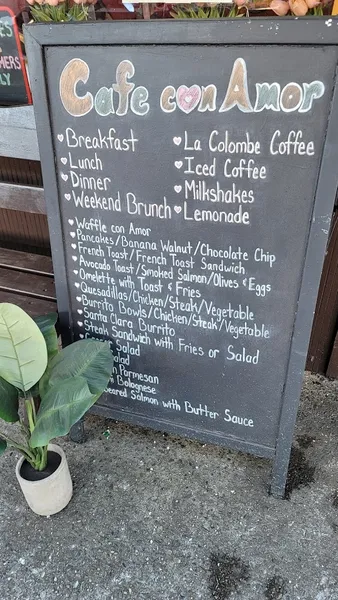 Cafe con Amor
Breakfast
Lunch
Dinner
Weekend Brunch
La Colombe Coffee
Iced Coffee
Milkshakes
Lemonade
Waffle con Amor
Pancakes/Banana Walnut/Chocolate Chip
French Toast/French Toast Sandwich
Avocado Toast/Smoked Salmon/Olives & Eggs
Omelette with Toast & Fries
Quesadillas/Chicken/Steak/Vegetable
Burrito Bowls/Chicken/Steak/Vegetable
Santa Clara Burrito
Steak Sandwich with Fries or Salad
Salad
Parmesan
Bolognese
Salmon with Butter Sauce